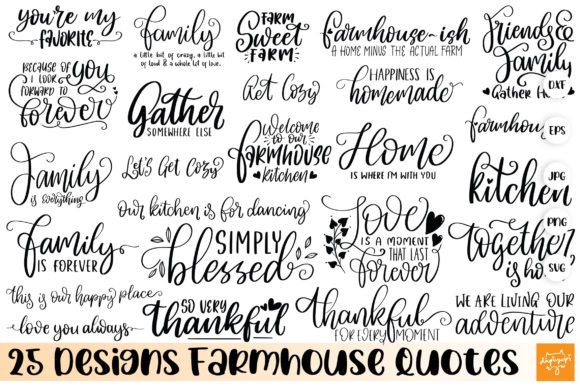 you're my
FAVORITE
family
a little bit of crazy, a little bit
of loud & a whole lot of love.
FARM
Sweet
FARM
farmhouse-ish
A HOME MINUS THE ACTUAL FARM
Friends &
Family
Gather
BECAUSE OF
you
I LOOK
FORWARD TO
forever
Gather
SOMEWHERE ELSE
Get Cozy
HAPPINESS IS
homemade
DXF
EPS
JPG
PNG
SVG
Family
is everything
Let's Get Cozy
Welcome
to our
FARMHOUSE
kitchen
Home
IS WHERE I'M WITH YOU
farmhou
kitchen
our kitchen is for dancing
family
IS FOREVER
SIMPLY
blessed
Love
IS A MOMENT
THAT LAST
forever
together
is
this is our happy place
love you always
SO VERY
thankful
thankful
FOR EVERY MOMENT
WE ARE LIVING OUR
adventure
25 Designs Farmhouse Quotes